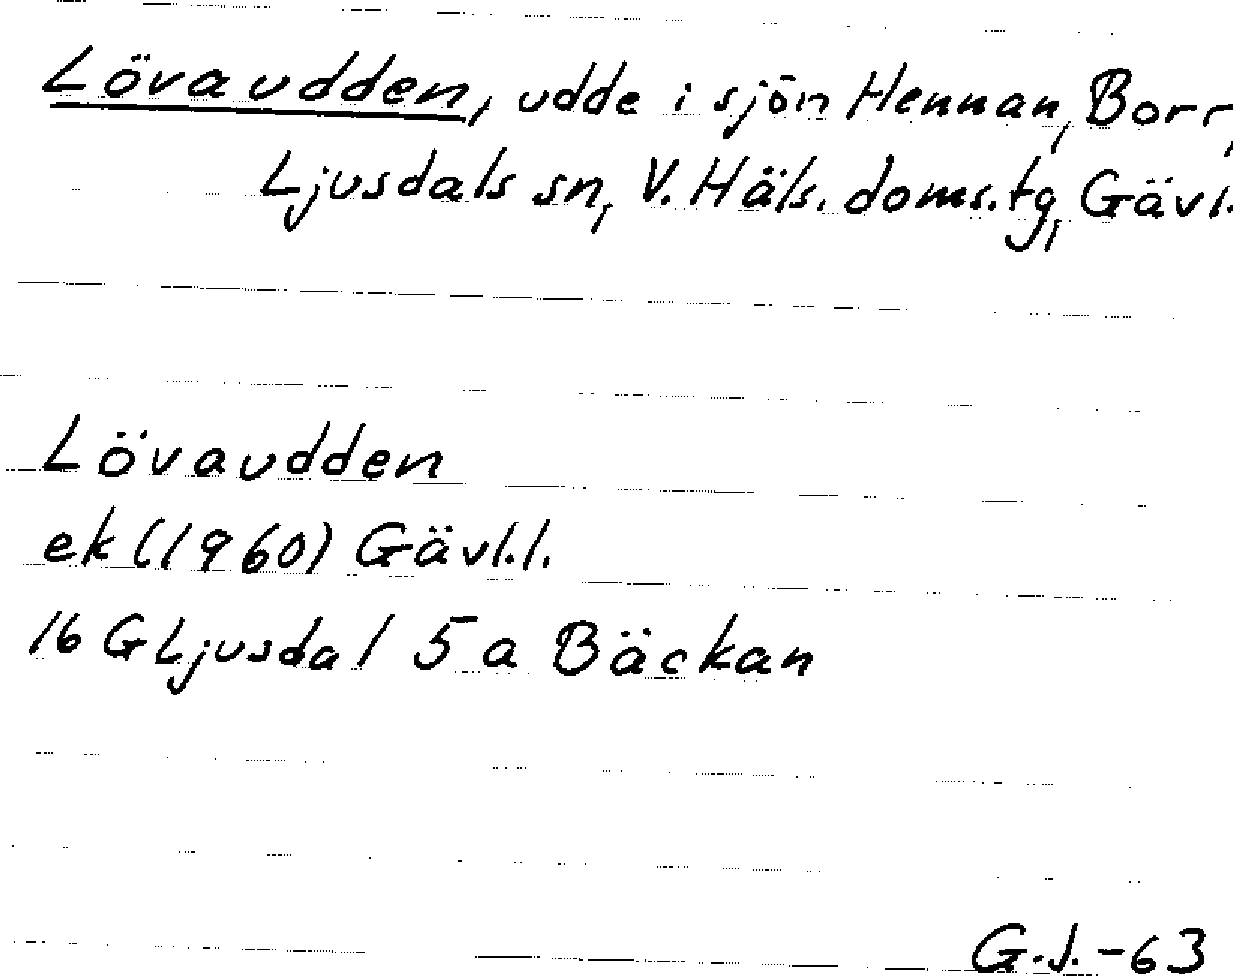 Lövaudden, udde i sjön Hennan, Borr,
Ljusdals sn, V. Häls. doms.tg, Gävl.
Lövaudden
ek (1960) Gävl.l.
16 G Ljusdal 5 a Bäckan
G.J.-63